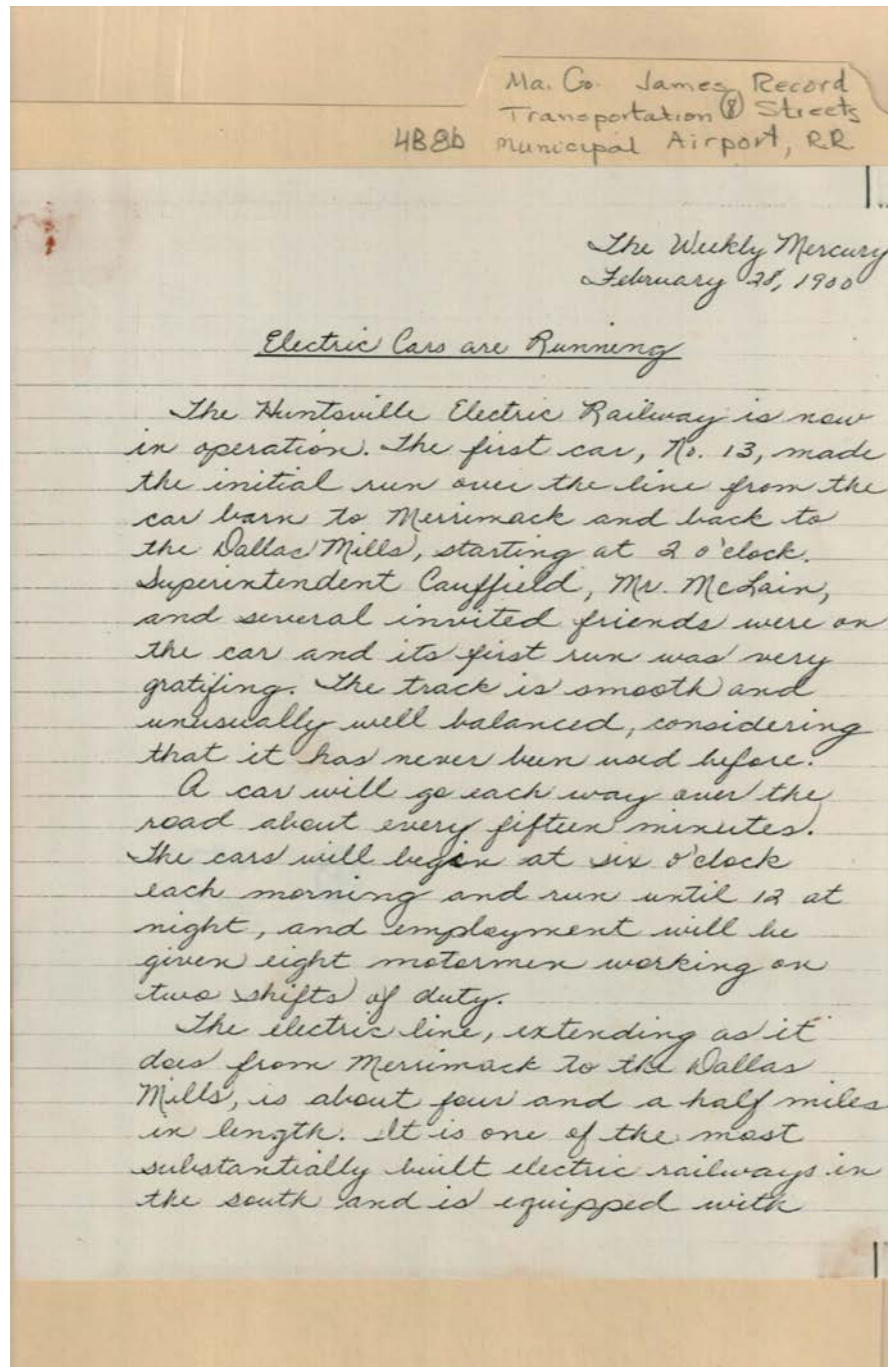 Ma. Co. James Record
Transportation ⑧ Streets
4B8b Municipal Airport, R.R.
The Weekly Mercury
February 28, 1900
Electric Cars are Running
The Huntsville Electric Railway is now
in operation. The first car, No. 13, made
the initial run over the line from the
car barn to Merrimack and back to
the Dallas Mills, starting at 2 o'clock.
Superintendent Cauffield, Mr. McLain,
and several invited friends were on
the car and its first run was very
gratifing. The track is smooth and
unusually well balanced, considering
that it has never been used before.
A car will go each way over the
road about every fifteen minutes.
The cars will begin at six o'clock
each morning and run until 12 at
night, and employment will be
given eight motormen working on
two shifts of duty.
The electric line, extending as it
does from Merrimack to the Dallas
Mills, is about four and a half miles
in length. It is one of the most
substantially built electric railways in
the south and is equipped with